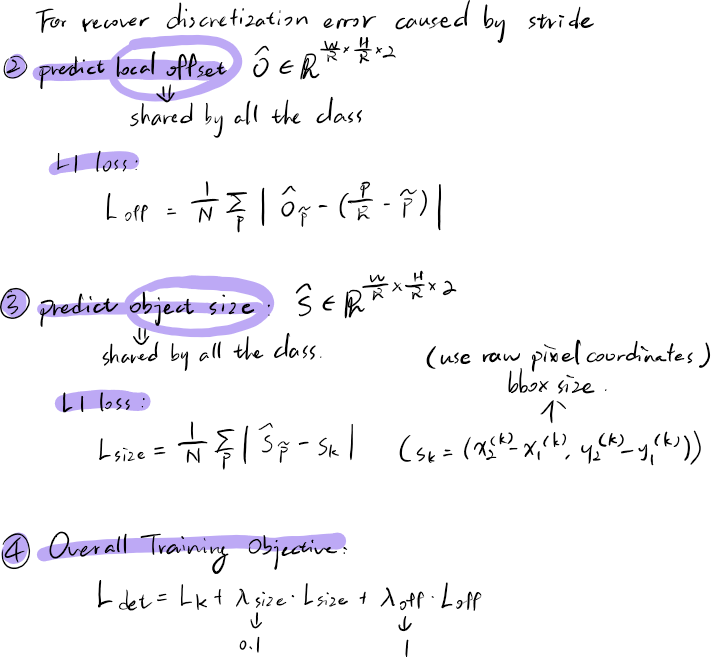 For recover discretization error caused by stride
② predict local offset Ô ∈ ℝ^{W/R × H/R × 2}
⇓
shared by all the class
L1 loss:
L_off = 1/N Σ_p | Ô_p̃ - (p/R - p̃) |
③ predict object size: Ŝ ∈ ℝ^{W/R × H/R × 2}
⇓
shared by all the class.
(use raw pixel coordinates)
bbox size.
↑
L1 loss:
L_size = 1/N Σ_p | Ŝ_p̃ - s_k | (s_k = (x_2^{(k)} - x_1^{(k)}, y_2^{(k)} - y_1^{(k)}))
④ Overall Training Objective:
L_det = L_k + λ_size · L_size + λ_off · L_off
↓ ↓
0.1 1